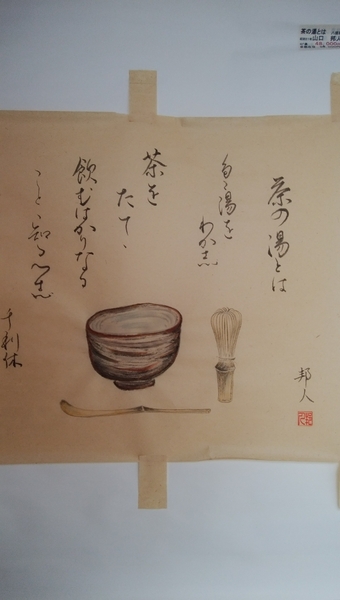 茶の湯とは
多ゝ湯をわか志
茶を
たてゝ
飲むはかりなる
ことゝ知る遍志
千利休
邦人
茶の湯とは
山口 邦人